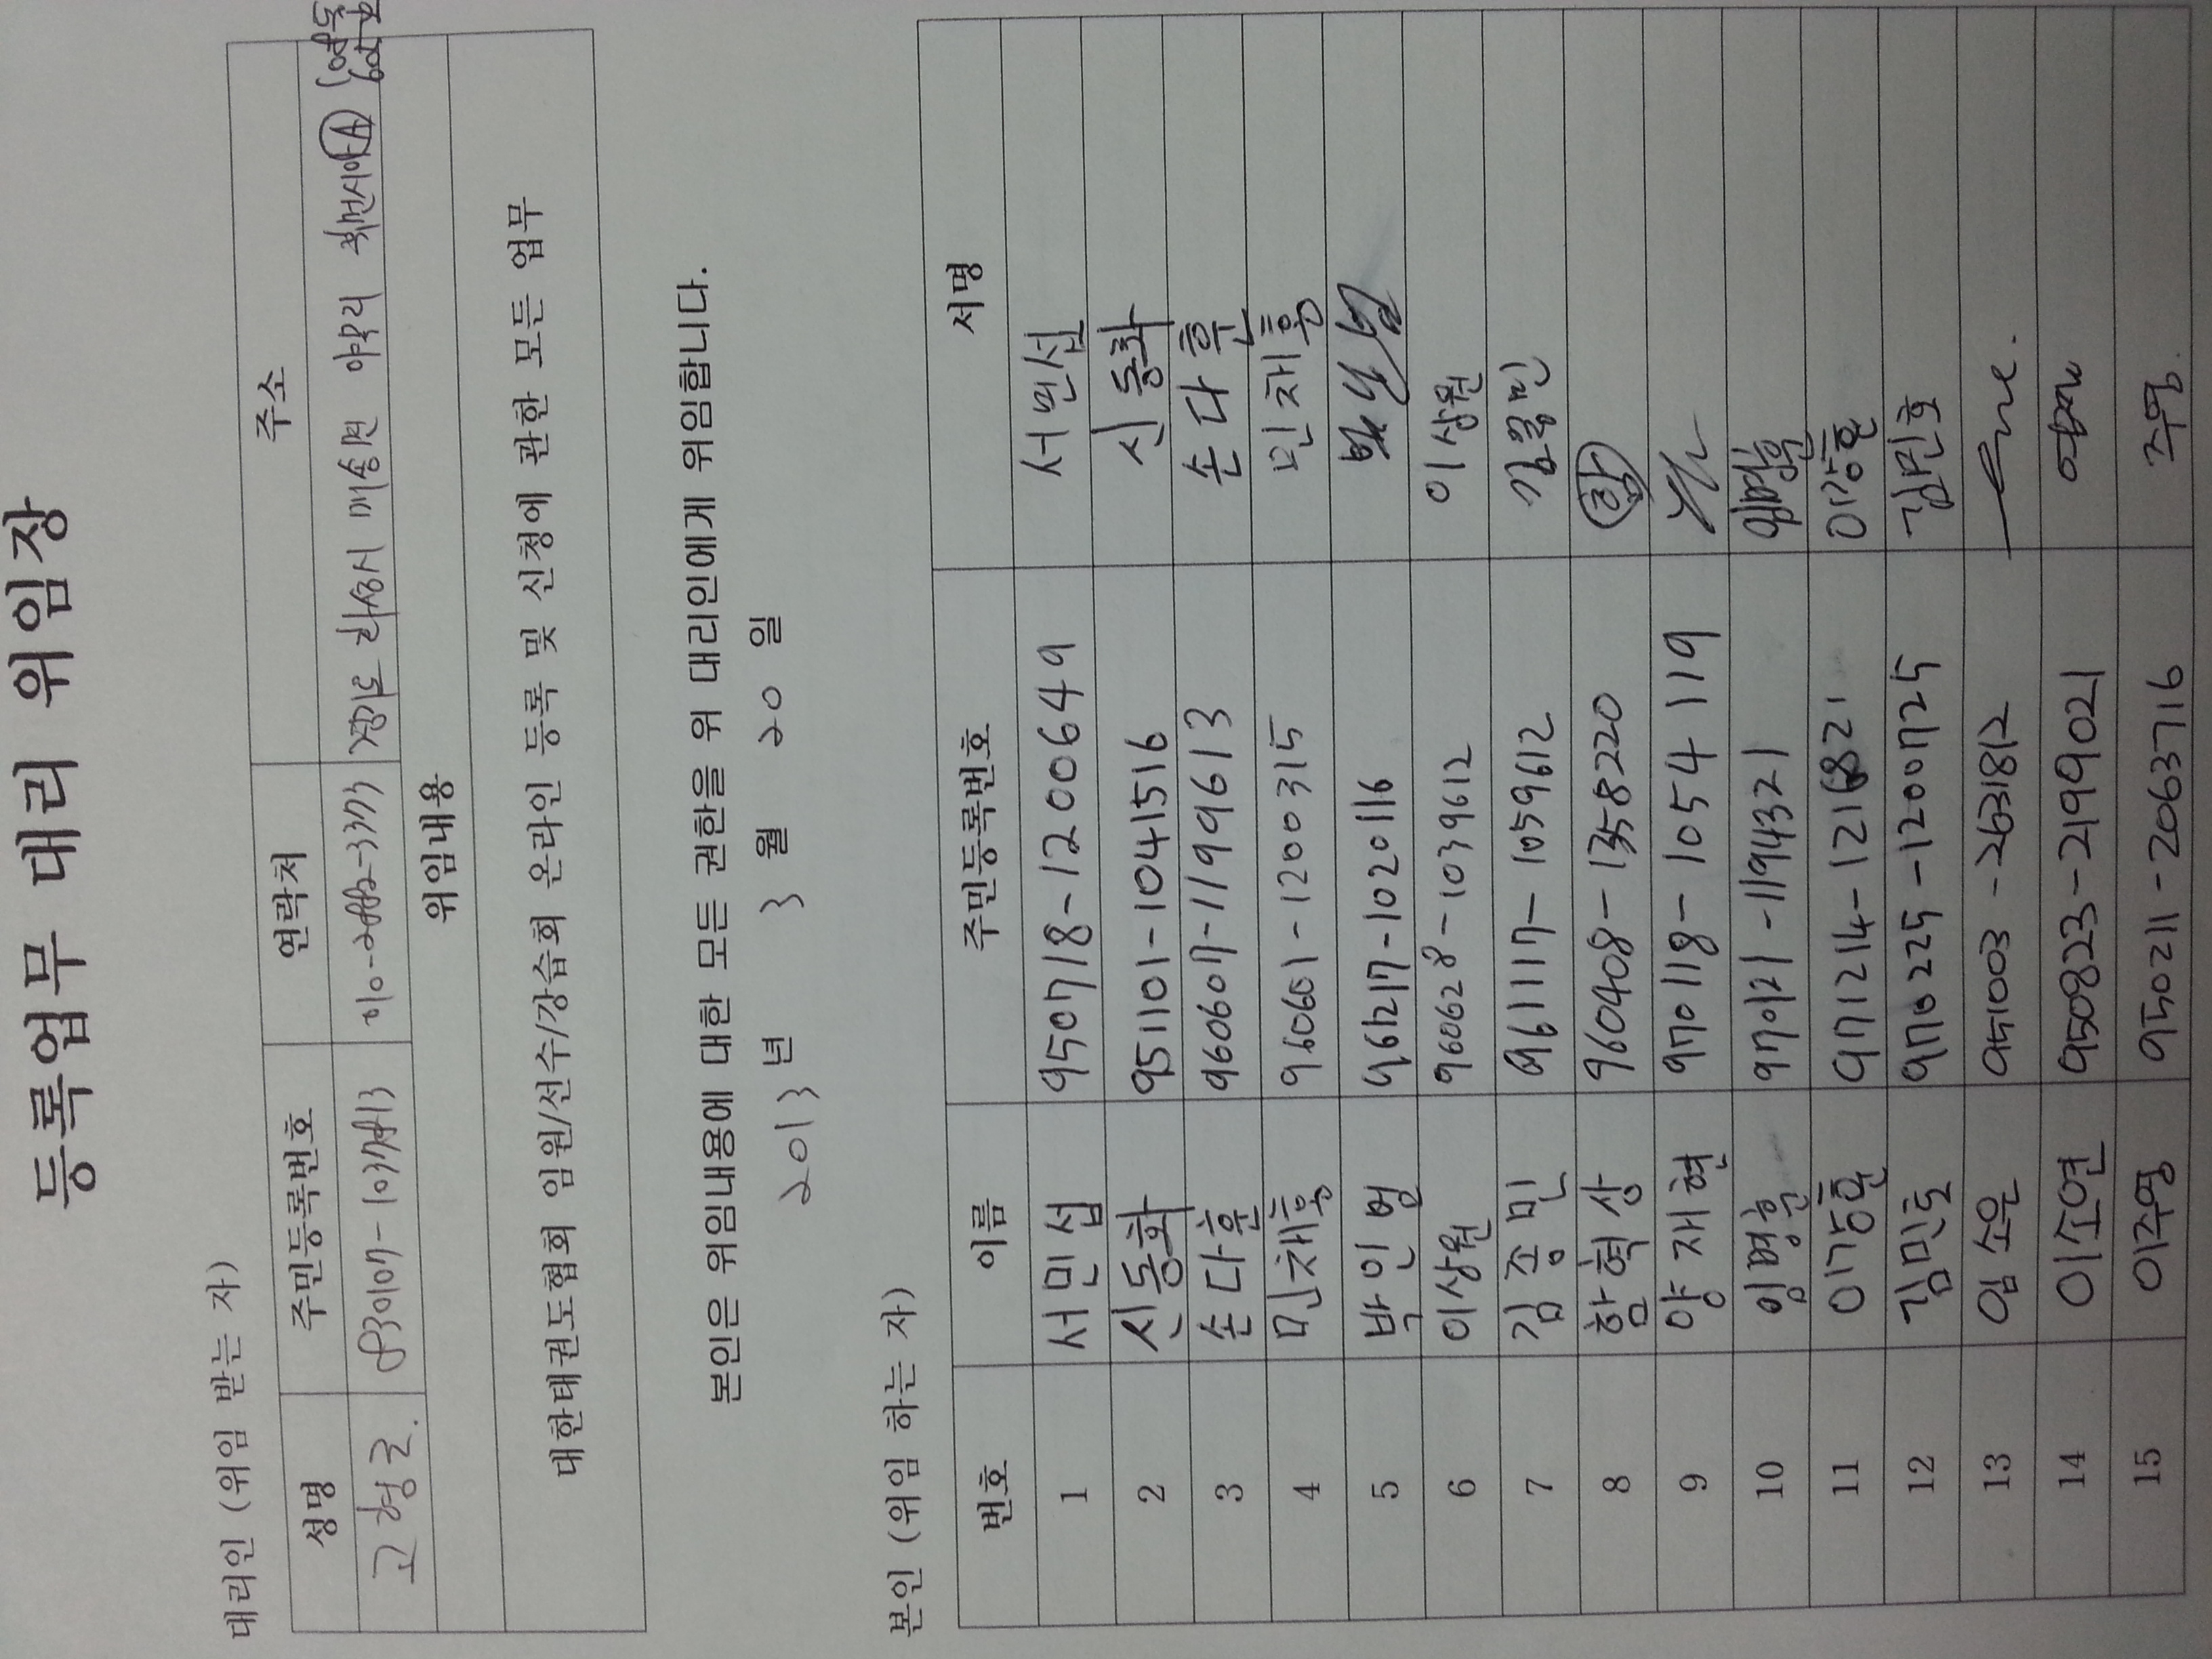 등록업무 대리 위임장
대리인 (위임 받는 자)
성명 주민등록번호 연락처 주소
고형근. 경기도 화성시 매송면 야목리
위임내용
대한태권도협회 임원/선수/강습회 온라인 등록 및 신청에 관한 모든 업무
본인은 위임내용에 대한 모든 권한을 위 대리인에게 위임합니다.
2013년 3월 20일
본인 (위임 하는 자)
번호 이름 주민등록번호 서명
1 서민섭 950718-1200649 서민섭
2 신동화 951101-1041516 신동화
3 손다훈 960607-1199613 손다훈
4 민채홍 960601-1200315 민채홍
5 박인범 961217-1020116
6 이상원 960628-1039612 이상원
7 김종민 961117-1059612 김종민
8 함혁상 960408-1358220 함
9 양재현 970118-1054119
10 임명훈 970121-1194321 임명훈
11 이강훈 971214-1216821 이강훈
12 김민호 970225-1200725 김민호
13 임소은 951003-2631812
14 이소연 950823-2199021
15 이주영 950211-2063716 주영.